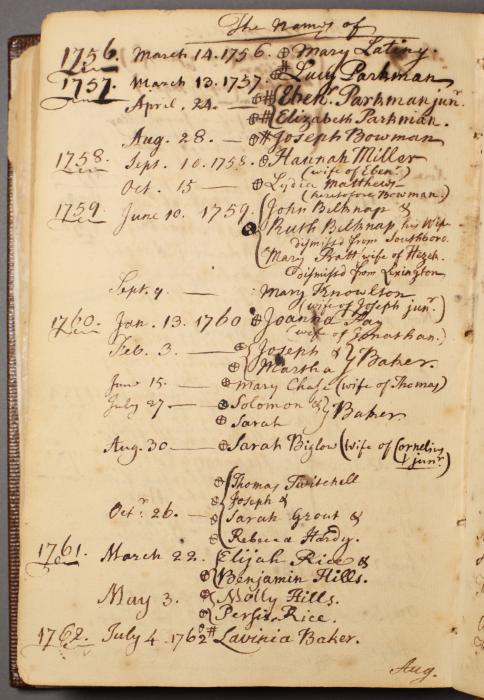 The Names of
1756. March 14. 1756. ⊕ Mary Latiny.
1757. March 13. 1757. # Lucy Parkman
April. 24. — ⊕# Eben.r Parkman jun.r
⊕# Elizabeth Parkman.
Aug. 28. — ⊕# Joseph Bowman
1758. Sept. 10. 1758. ⊕ Hannah Miller
(wife of Eben.r)
Oct. 15 — ⊕ Lydia Matthews
(heretofore Bowman.)
1759. June 10. 1759. John Belknap &
Ruth Belknap his Wife
dismissed from Southboro.
Mary Pratt wife of Hezek.
dismissed from Lexington
Sept. 9. — Mary Knowlton
(wife of Joseph jun.r)
1760. Jan. 13. 1760 # Joanna Fay
(wife of Jonathan.)
Feb. 3. — ⊕ Joseph & } Baker.
⊕ Martha
June 15. — ⊕ Mary Chase (wife of Thomas)
July 27 — ⊕ Solomon & } Baker.
⊕ Sarah
Aug. 30 — ⊕ Sarah Biglow (wife of Cornelius
jun.r)
⊕ Thomas Twitchell
⊕ Joseph &
Oct.r 26. — ⊕ Sarah Grout &
⊕ Rebecca Hardy.
1761. March 22. Elijah Rice &
⊕ Benjamin Hills.
May 3. ⊕ Molly Hills.
⊕ Persis Rice.
1762. July 4. 1762 # Lavinia Baker.
Aug.